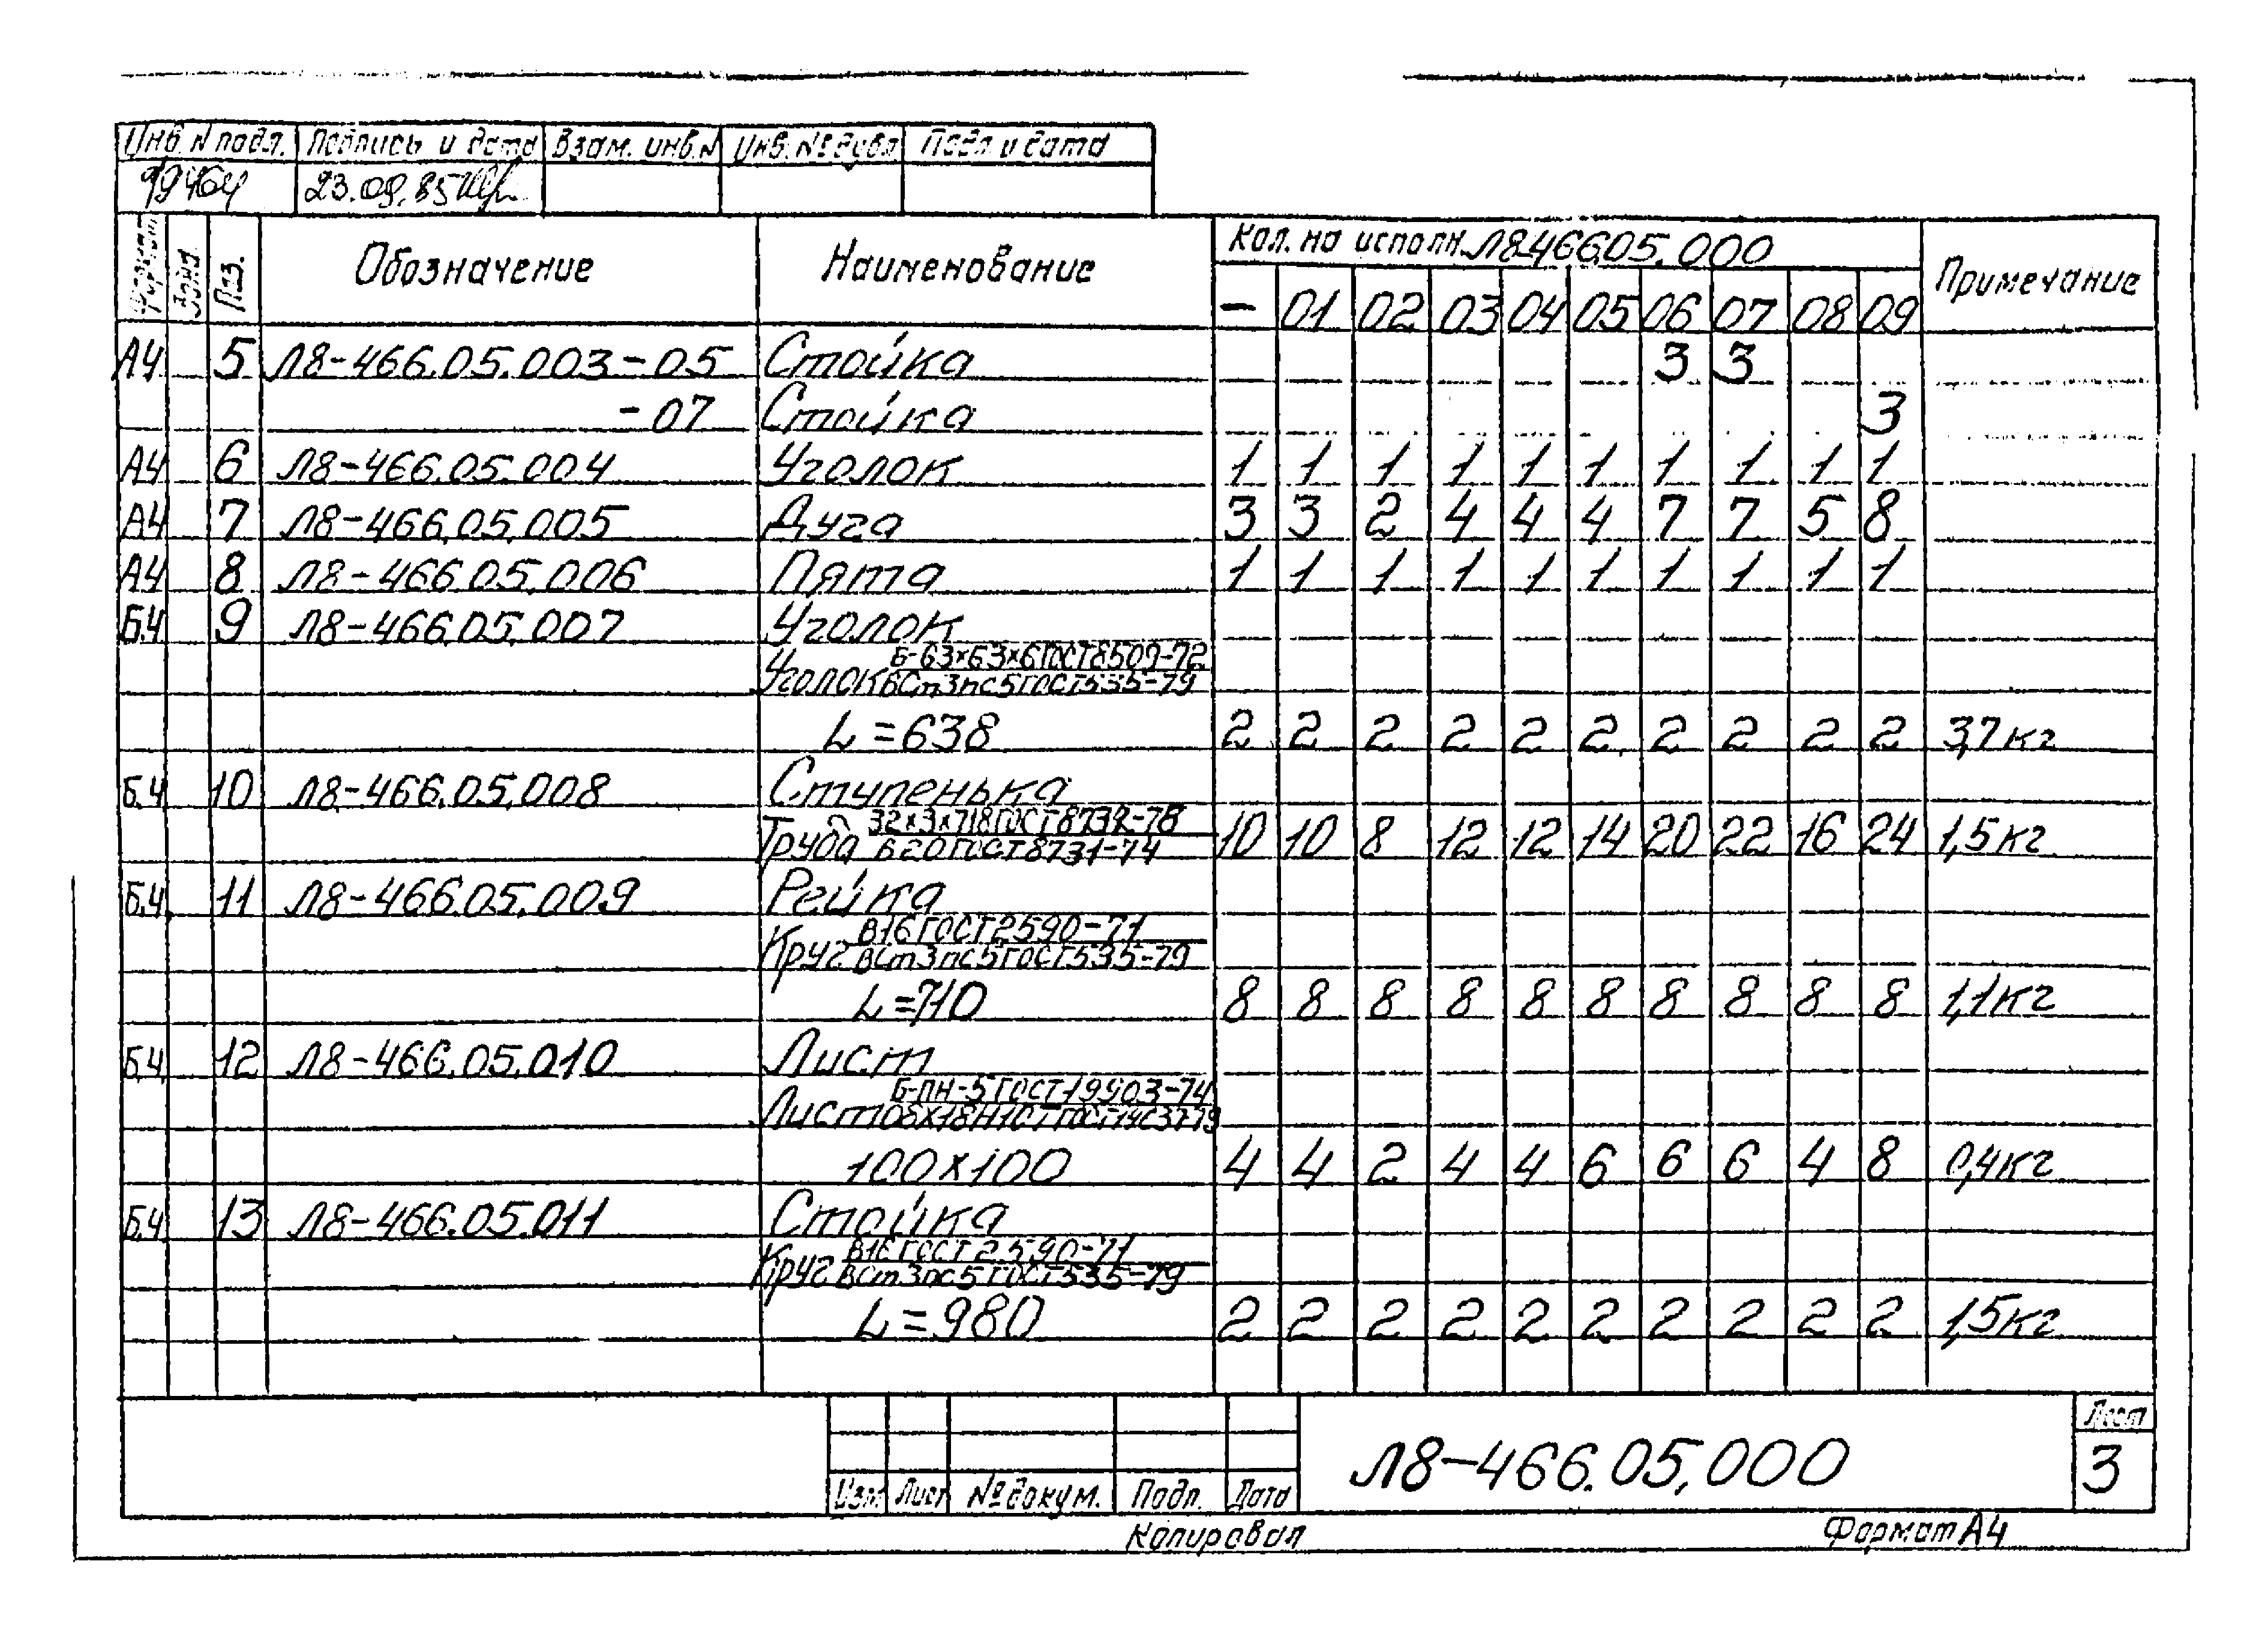 Инв. N подл. Подпись и дата Взам. инв. N Инв. № дубл Подп и дата
19464 23.09.85
Формат Зона Поз. Обозначение Наименование Кол. на исполн. Л8-466.05.000 Примечание
— 01 02 03 04 05 06 07 08 09
А4 5 Л8-466.05.003-05 Стойка 3 3
-07 Стойка 3
А4 6 Л8-466.05.004 Уголок 1 1 1 1 1 1 1 1 1 1
А4 7 Л8-466.05.005 Дуга 3 3 2 4 4 4 7 7 5 8
А4 8 Л8-466.05.006 Пята 1 1 1 1 1 1 1 1 1 1
Б.4 9 Л8-466.05.007 Уголок
Б-63×63×6 ГОСТ 8509-72
Уголок ВСт3пс5 ГОСТ 535-79
L=638 2 2 2 2 2 2 2 2 2 2 3,7 кг
Б.4 10 Л8-466.05.008 Ступенька
32×3×718 ГОСТ 8732-78
Труба В20 ГОСТ 8731-74 10 10 8 12 12 14 20 22 16 24 1,5 кг
Б.4 11 Л8-466.05.009 Рейка
В16 ГОСТ 2590-71
Круг ВСт3пс5 ГОСТ 535-79
L=710 8 8 8 8 8 8 8 8 8 8 1,1 кг
Б.4 12 Л8-466.05.010 Лист
Б-ПН-5 ГОСТ 19903-74
Лист 08Х18Н10Т ГОСТ
100×100 4 4 2 4 4 6 6 6 4 8 0,4 кг
Б.4 13 Л8-466.05.011 Стойка
В16 ГОСТ 2590-71
Круг ВСт3пс5 ГОСТ 535-79
L=980 2 2 2 2 2 2 2 2 2 2 1,5 кг
Изм Лист № докум. Подп. Дата Л8-466.05.000 Лист
3
Копировал Формат А4